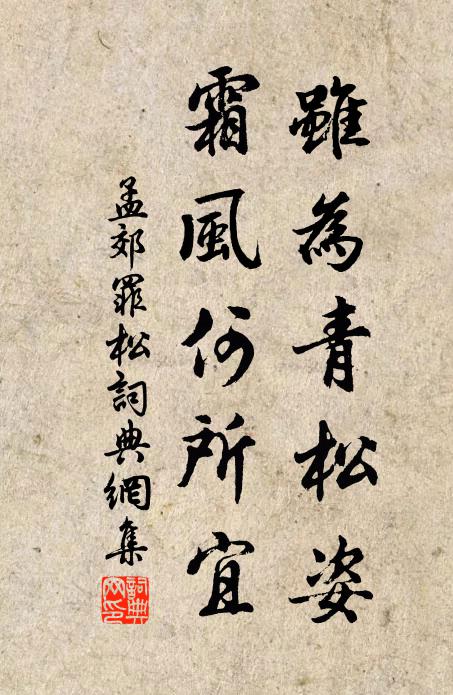 雖為青松姿
霜風何所宜
孟郊罪松詞典網集
詞典網印